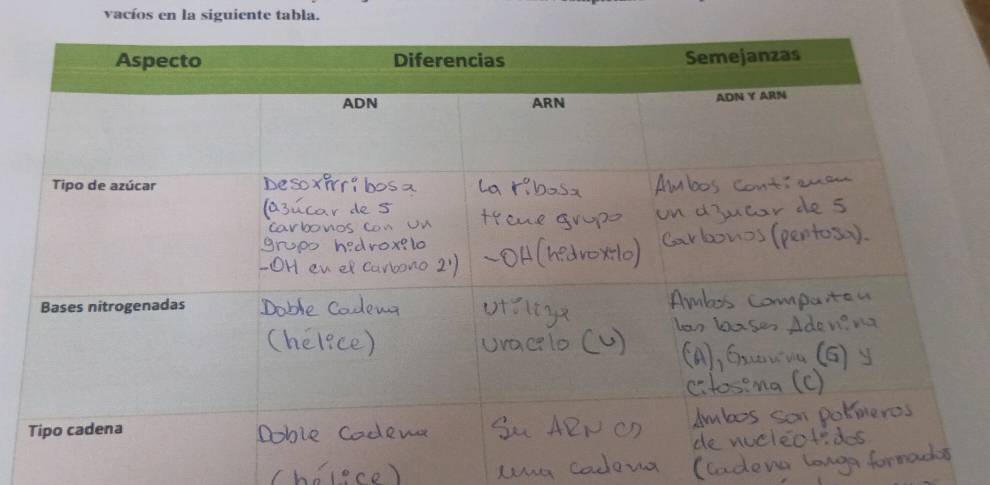 vacíos en la siguiente tabla.
Aspecto Diferencias Semejanzas
ADN ARN ADN Y ARN
Tipo de azúcar
Desoxirribosa
(azúcar de 5
carbonos con un
grupo hidroxilo
-OH en el carbono 2')
La ribosa
tiene grupo
-OH (hidroxilo)
Ambos contienen
un azúcar de 5
carbonos (pentosa).
Bases nitrogenadas
Doble cadena
(hélice)
Utiliza
uracilo (U)
Ambos comparten
las bases Adenina
(A), Guanina (G) y
citosina (C)
Tipo cadena
Doble cadena
(hélice)
Su ARN es
una cadena
Ambos son polímeros
de nucleótidos
(cadena larga formados